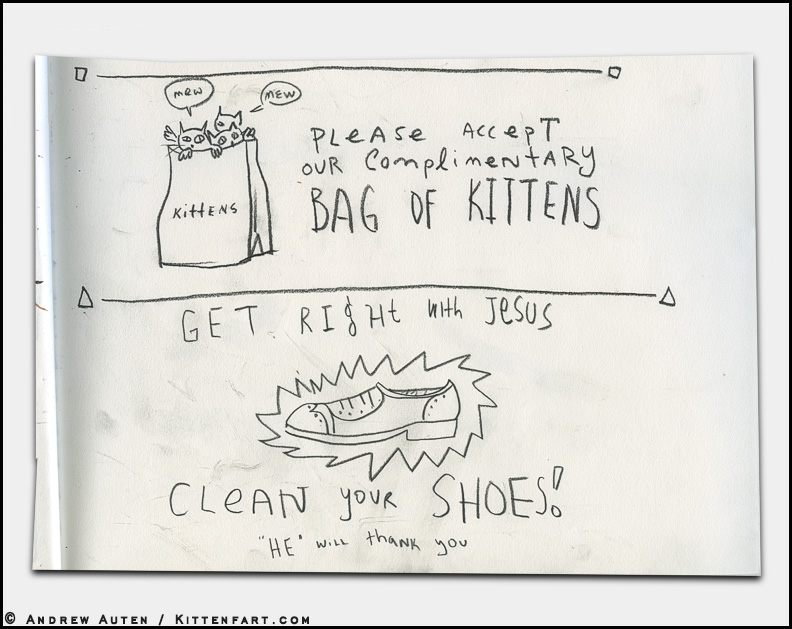 mew
mew
Kittens
PLEASE ACCEPT
OUR COMPLIMENTARY
BAG OF KITTENS
GET RIGHT with JESUS
CLEAN YOUR SHOES!
"HE" WILL thank you
© ANDREW AUTEN / KITTENFART.COM